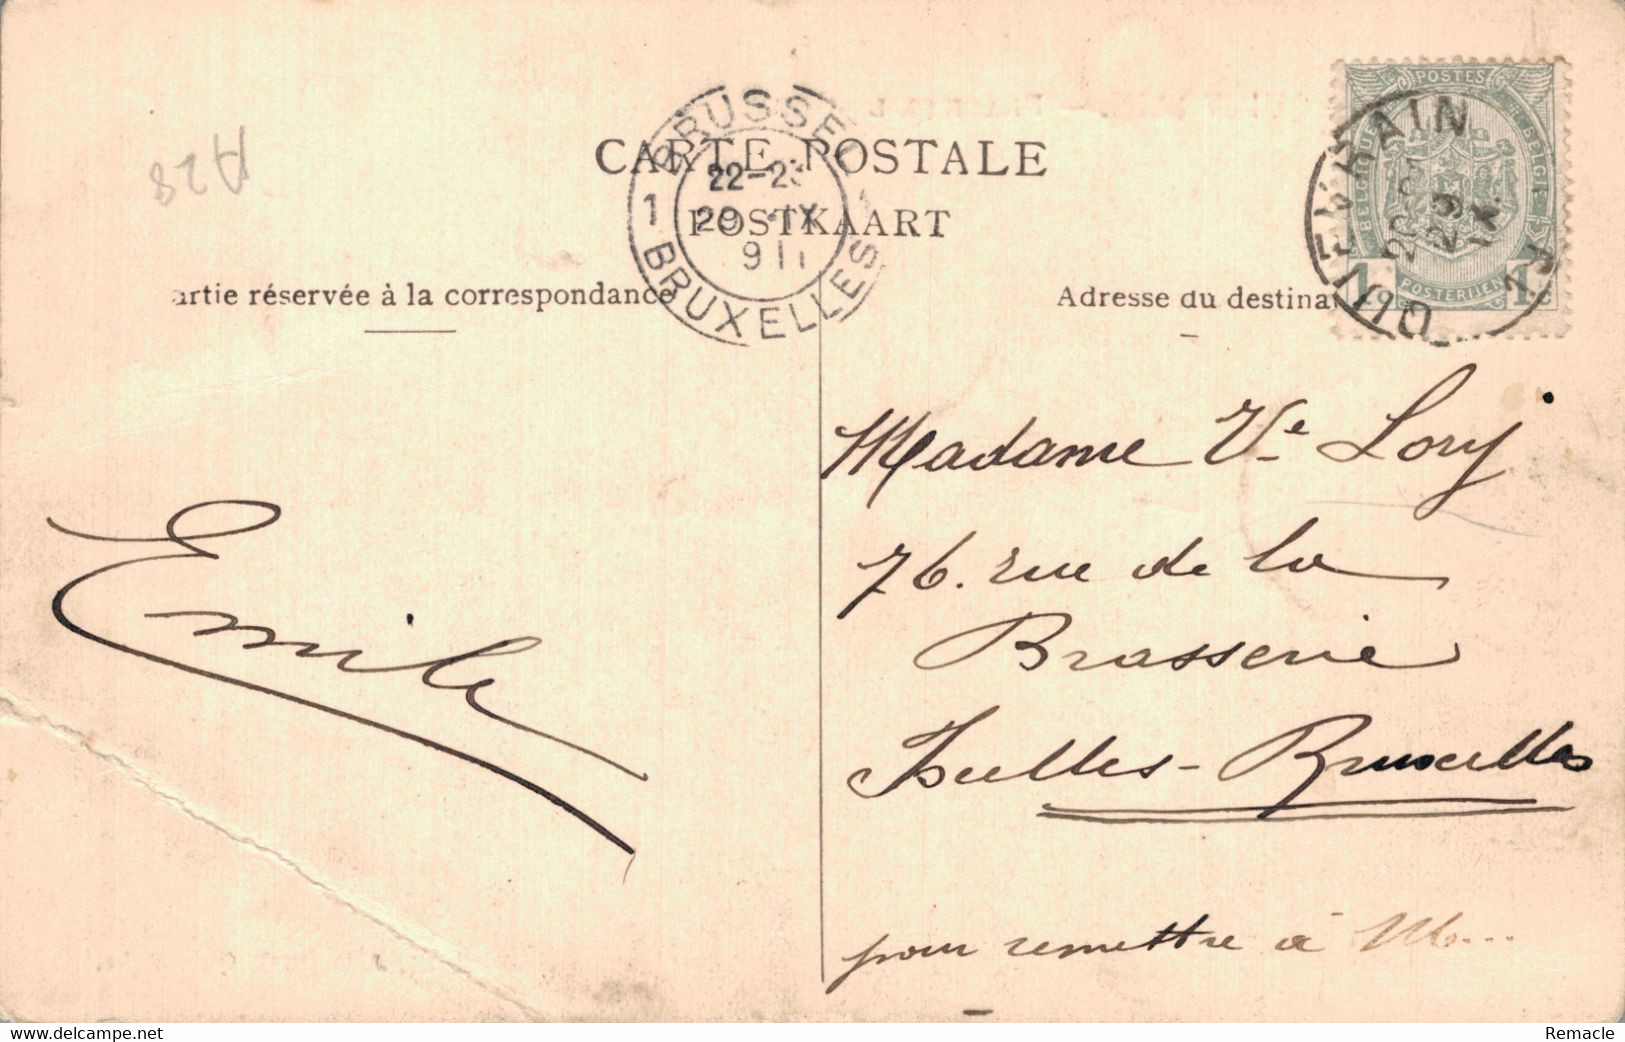 A28
BRUSSEL
22-2
29 IX
911
1
BRUXELLES
CARTE POSTALE
POSTKAART
artie réservée à la correspondance
Adresse du destina
POSTES
BELGIQUE
POSTERIJEN
1c 1c
QUIÉVRAIN
1A
Madame Ve Lory
76. rue de la
Brasserie
Ixelles - Bruxelles
Emile
pour remettre à M...
delcampe.net
Remacle